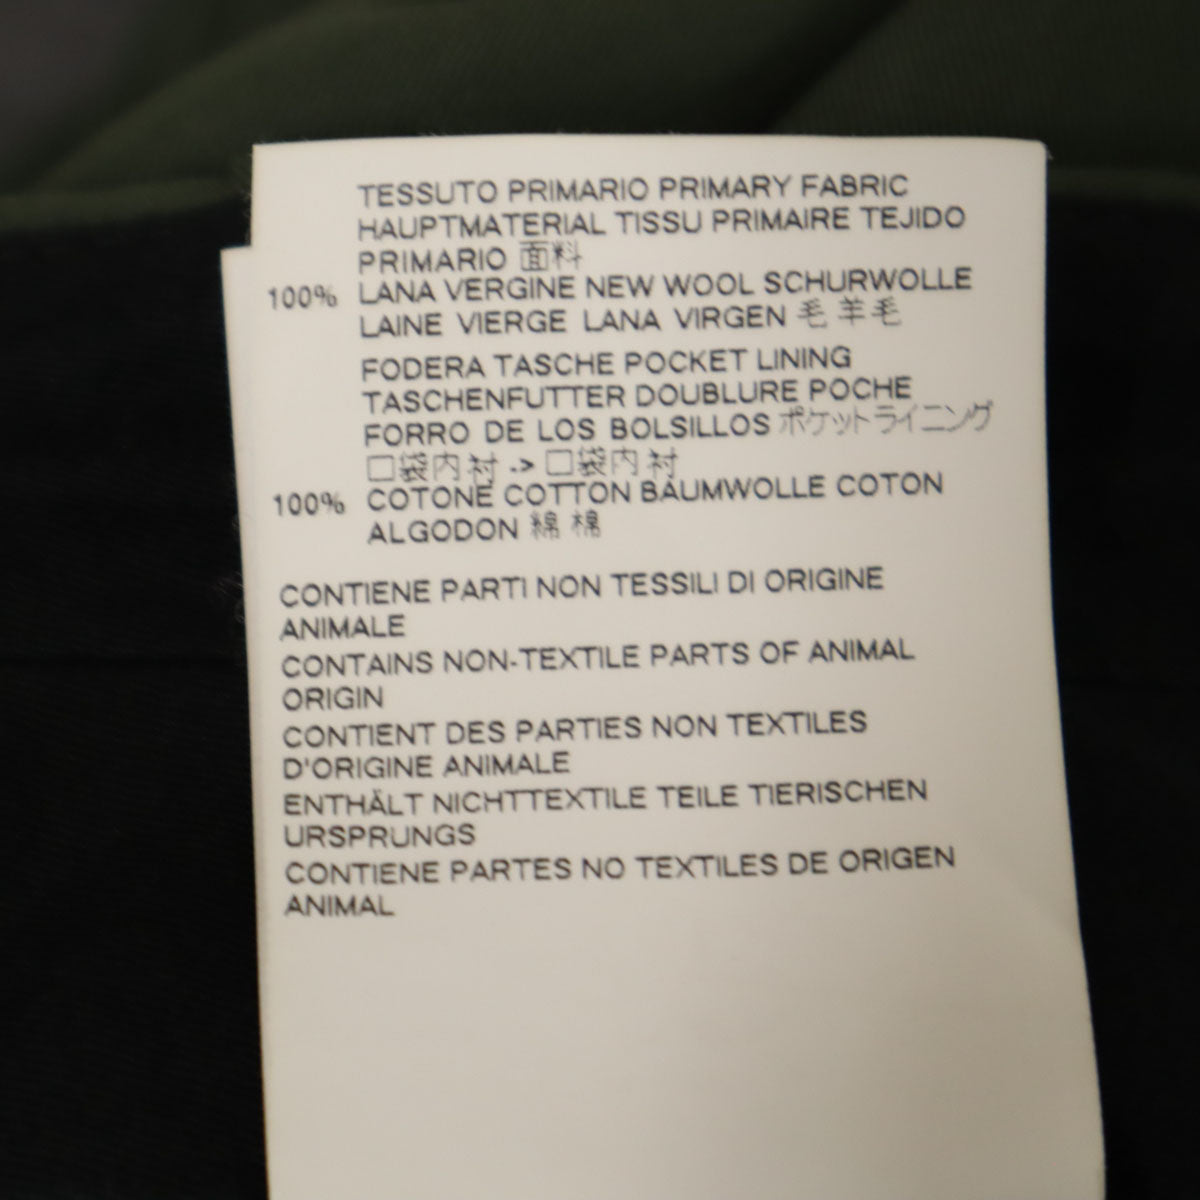 TESSUTO PRIMARIO PRIMARY FABRIC
HAUPTMATERIAL TISSU PRIMAIRE TEJIDO
PRIMARIO 面料
100% LANA VERGINE NEW WOOL SCHURWOLLE
LAINE VIERGE LANA VIRGEN 毛 羊毛
FODERA TASCHE POCKET LINING
TASCHENFUTTER DOUBLURE POCHE
FORRO DE LOS BOLSILLOS ポケットライニング
口袋内衬 -> 口袋内衬
100% COTONE COTTON BAUMWOLLE COTON
ALGODON 綿 棉
CONTIENE PARTI NON TESSILI DI ORIGINE
ANIMALE
CONTAINS NON-TEXTILE PARTS OF ANIMAL
ORIGIN
CONTIENT DES PARTIES NON TEXTILES
D'ORIGINE ANIMALE
ENTHÄLT NICHTTEXTILE TEILE TIERISCHEN
URSPRUNGS
CONTIENE PARTES NO TEXTILES DE ORIGEN
ANIMAL